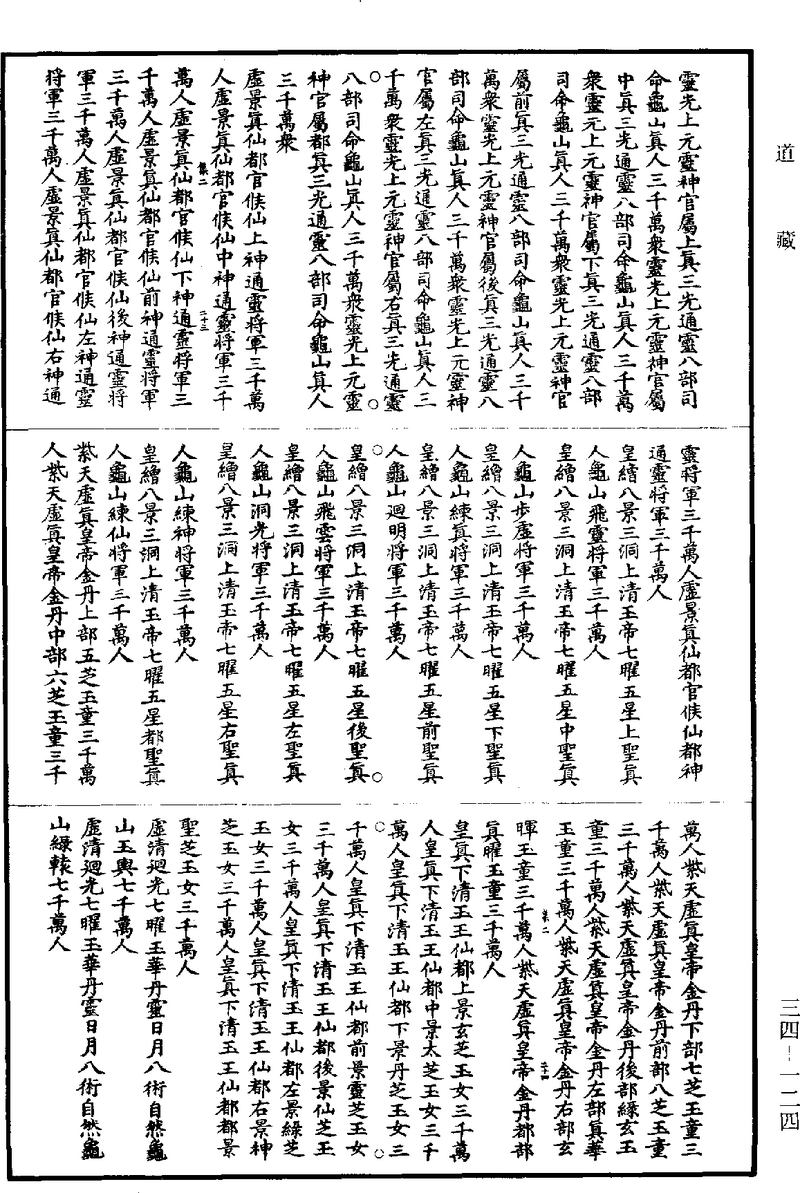 道藏
靈光上元靈神官屬上真三光通靈八部司
命龜山真人三千萬衆靈光上元靈神官屬
中真三光通靈八部司命龜山真人三千萬
衆靈元上元靈神官屬下真三光通靈八部
司命龜山真人三千萬衆靈光上元靈神官
屬前真三光通靈八部司命龜山真人三千
萬衆靈光上元靈神官屬後真三光通靈八
部司命龜山真人三千萬衆靈光上元靈神
官屬左真三光通靈八部司命龜山真人三
千萬衆靈光上元靈神官屬右真三光通靈
八部司命龜山真人三千萬衆靈光上元靈
神官屬都真三光通靈八部司命龜山真人
三千萬衆
虛景真仙都官候仙上神通靈將軍三千萬
人虛景真仙都官候仙中神通靈將軍三千
集二 二十三
萬人虛景真仙都官候仙下神通靈將軍三
千萬人虛景真仙都官候仙前神通靈將軍
三千萬人虛景真仙都官候仙後神通靈將
軍三千萬人虛景真仙都官候仙左神通靈
將軍三千萬人虛景真仙都官候仙右神通
靈將軍三千萬人虛景真仙都官候仙都神
通靈將軍三千萬人
皇繒八景三洞上清玉帝七曜五星上聖真
人龜山飛靈將軍三千萬人
皇繒八景三洞上清玉帝七曜五星中聖真
人龜山步虛將軍三千萬人
皇繒八景三洞上清玉帝七曜五星下聖真
人龜山練真將軍三千萬人
皇繒八景三洞上清玉帝七曜五星前聖真
人龜山迴明將軍三千萬人
皇繒八景三洞上清玉帝七曜五星後聖真
人龜山飛雲將軍三千萬人
皇繒八景三洞上清玉帝七曜五星左聖真
人龜山洞光將軍三千萬人
皇繒八景三洞上清玉帝七曜五星右聖真
人龜山練神將軍三千萬人
皇繒八景三洞上清玉帝七曜五星都聖真
人龜山練仙將軍三千萬人
紫天虛真皇帝金丹上部五芝玉童三千萬
人紫天虛真皇帝金丹中部六芝玉童三千
萬人紫天虛真皇帝金丹下部七芝玉童三
千萬人紫天虛真皇帝金丹前部八芝玉童
三千萬人紫天虛真皇帝金丹後部綠玄玉
童三千萬人紫天虛真皇帝金丹左部真華
玉童三千萬人紫天虛真皇帝金丹右部玄
暉玉童三千萬人紫天虛真皇帝金丹都部
集二 二十四
真曜玉童三千萬人
皇真下清玉王仙都上景玄芝玉女三千萬
人皇真下清玉王仙都中景太芝玉女三千
萬人皇真下清玉王仙都下景丹芝玉女三
千萬人皇真下清玉王仙都前景靈芝玉女
三千萬人皇真下清玉王仙都後景仙芝玉
女三千萬人皇真下清玉王仙都左景綠芝
玉女三千萬人皇真下清玉王仙都右景神
芝玉女三千萬人皇真下清玉王仙都都景
聖芝玉女三千萬人
虛清迴光七曜玉華丹靈日月八術自然龜
山玉輿七千萬人
虛清迴光七曜玉華丹靈日月八術自然龜
山綠轅七千萬人
三四—一二四